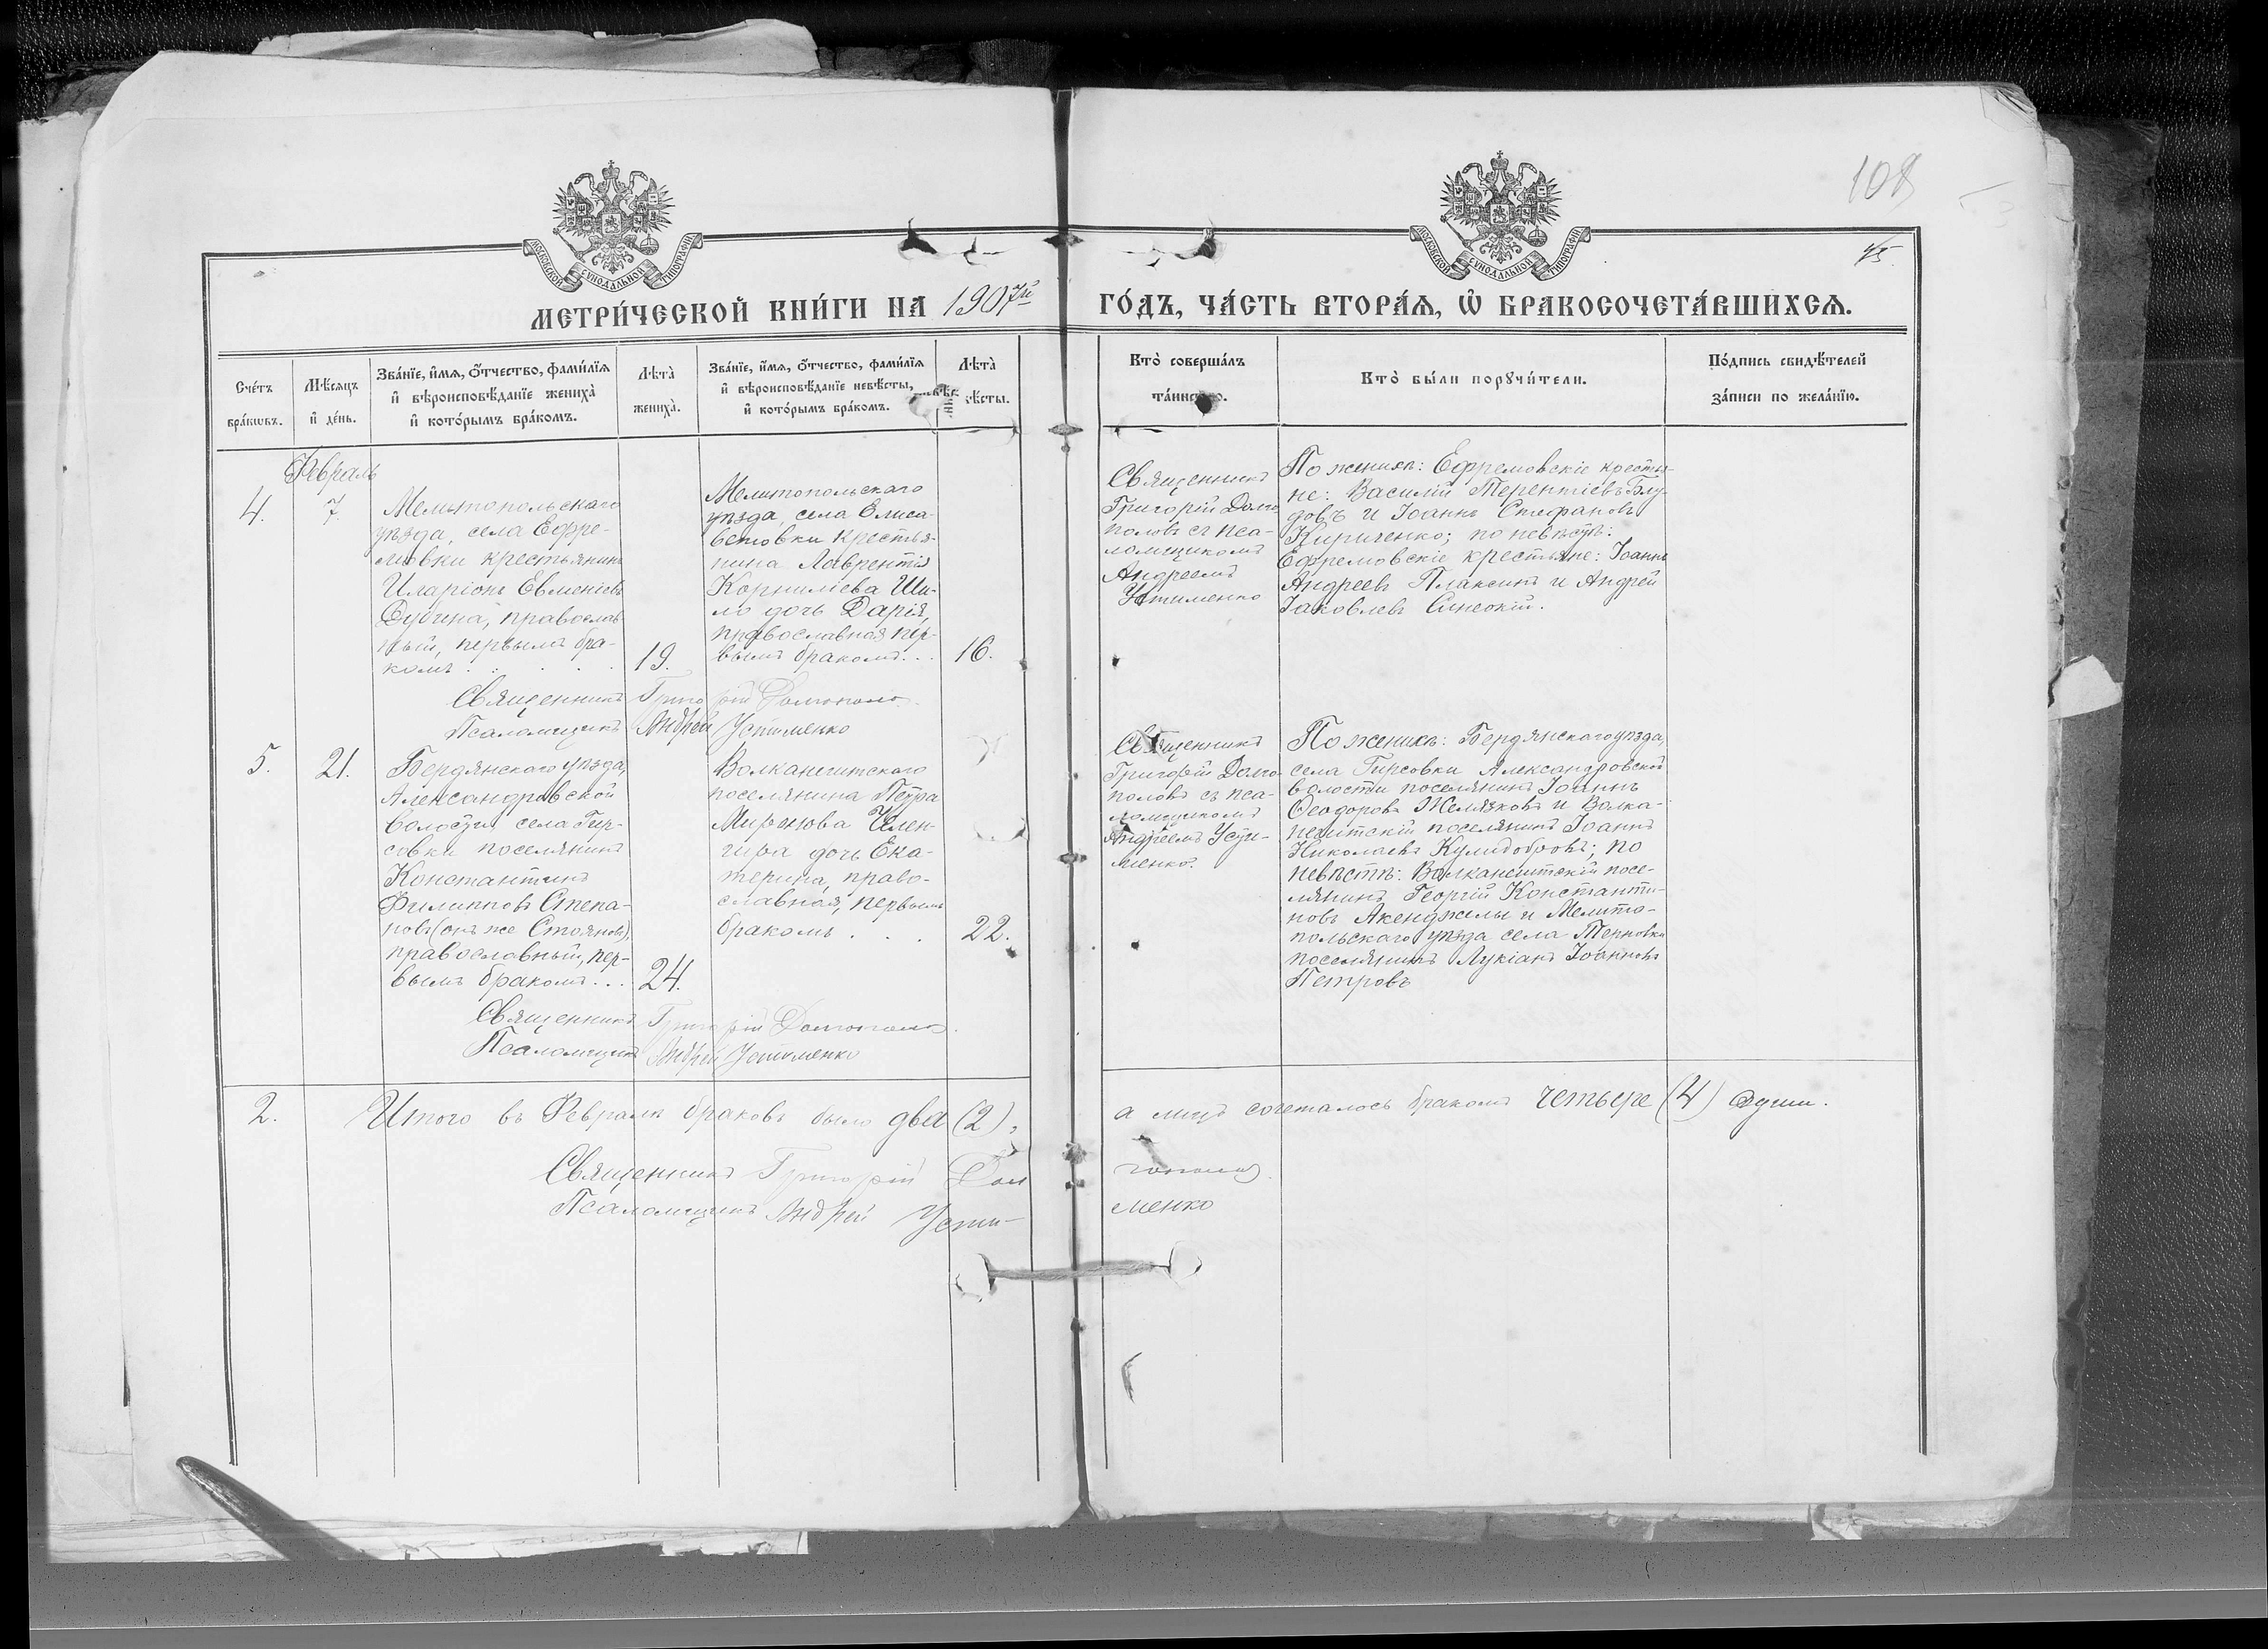 108
45.
МОСКОВСКОЙ СѴНОДАЛЬНОЙ ТИПОГРАФІИ
МОСКОВСКОЙ СѴНОДАЛЬНОЙ ТИПОГРАФІИ
МЕТРИ́ЧЕСКОЙ КНИ́ГИ НА 1907й
ГО́ДЪ, ЧА́СТЬ ВТОРА́Я, Ѡ БРАКОСОЧЕТА́ВШИХСЯ.
Сче́тъ
бра́кѡвъ.
Мѣ́сяцъ
и де́нь.
Зва́нїе, и́мя, о́тчество, фами́лїя
и вѣроисповѣ́данїе жениха̀
и кото́рымъ бра́комъ.
Лѣта̀
жениха̀.
Зва́нїе, и́мя, о́тчество, фами́лїя
и вѣроисповѣ́данїе невѣ́сты,
и кото́рымъ бра́комъ.
Лѣта̀
невѣ́сты.
Кто̀ соверша́лъ
та́инство.
Кто̀ бы́ли порꙋчи́тели.
По́дпись свидѣ́телей
за́писи по жела́нїю.
Февраль
4.
7.
Мелитопольскаго
уѣзда, села Ефре-
мовки крестьянинъ
Иларіонъ Евменіевъ
Дубина, православ-
ный, первымъ бра-
комъ . . . .
19.
Мелитопольскаго
уѣзда, села Елиса-
ветовки крестья-
нина Лаврентія
Корниліева Ши-
ло дочь Дарія,
православная пер-
вымъ бракомъ...
16.
Священникъ
Григорій Долго-
половъ съ пса-
ломщикомъ
Андреемъ
Устименко
По женихѣ: Ефремовскіе крестья-
не: Василій Терентіевъ Блу-
довъ и Іоаннъ Стефановъ
Кириченко; по невѣстѣ:
Ефремовскіе крестьяне: Іоаннъ
Андреевъ Плаксинъ и Андрей
Іаковлевъ Синеокій.
Священникъ Григорій Долгополовъ.
Псаломщикъ Андрей Устименко
5.
21.
Бердянскаго уѣзда,
Александровской
волости села Гир-
совки поселянинъ
Константинъ
Филипповъ Степа-
новъ (онъ же Стояновъ),
православный, пер-
вымъ бракомъ...
24.
Волканештскаго
поселянина Петра
Миронова
дочь Ека-
терина, право-
славная, первымъ
бракомъ . . .
22.
Священникъ
Григорій Долго-
половъ съ пса-
ломщикомъ
Андреемъ Усти-
менко.
По женихѣ: Бердянскаго уѣзда,
села Гирсовки Александровской
волости поселянинъ Іоаннъ
Ѳеодоровъ Желязковъ и Волка-
нештскій поселянинъ Іоаннъ
Николаевъ; по
невѣстѣ: Волканештскій посе-
лянинъ Георгій Константи-
новъ Акенджелы и Мелито-
польскаго уѣзда села Терновки
поселянинъ Лукіанъ Іоанновъ
Петровъ
Священникъ Григорій Долгополовъ.
Псаломщикъ Андрей Устименко
2.
Итого въ Февралѣ браковъ было два (2),
а лицъ сочеталось бракомъ четыре (4) души.
Священникъ Григорій Долгополовъ
Псаломщикъ Андрей Усти-
менко